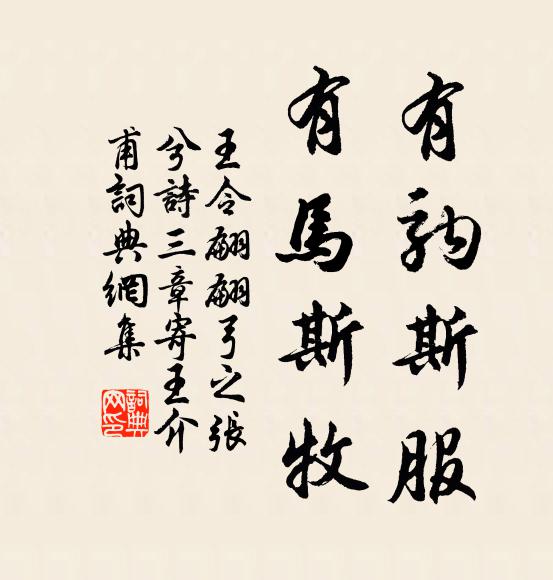 有軜斯服
有馬斯牧
王令翩翩弓之張
兮詩三章寄王介
甫詞典網集
詞典
网印